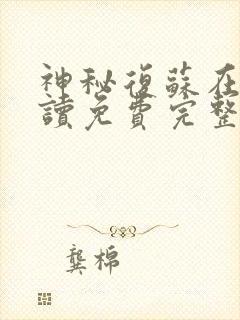 神秘復蘇在
讀免費完整
龔棉